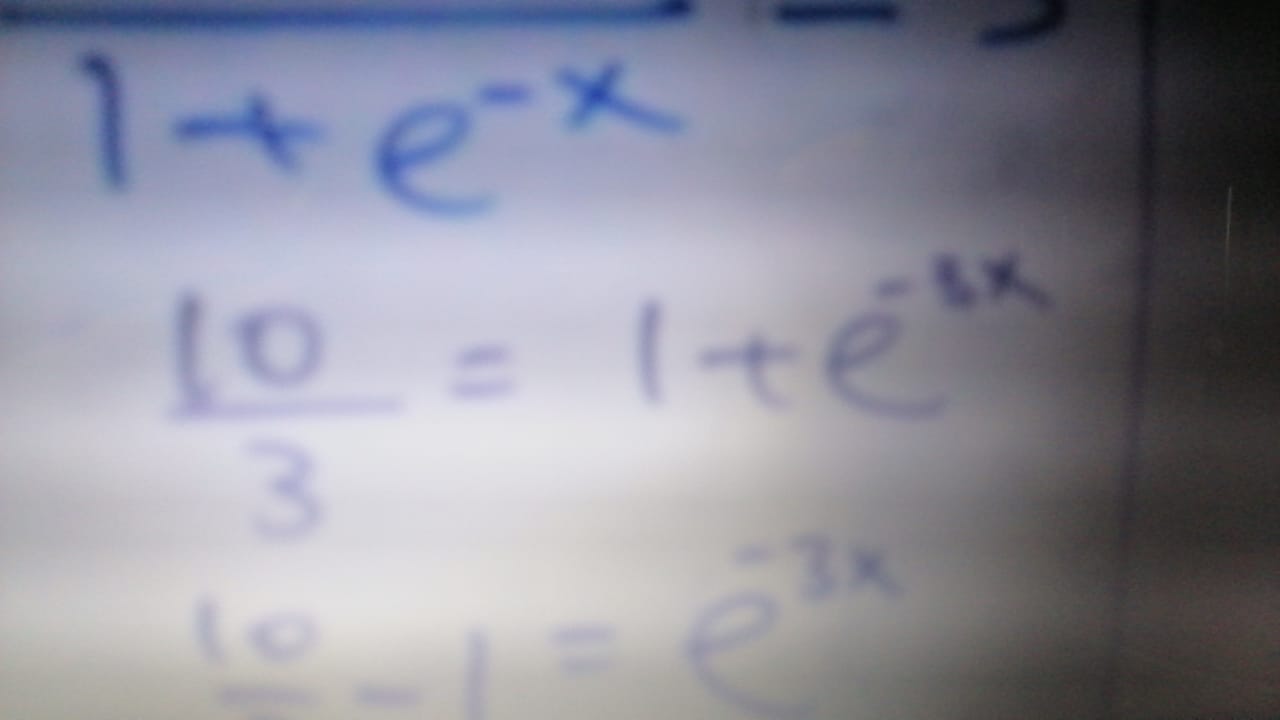 1 + e^{-x} =
10/3 = 1 + e^{-3x}
10/ - 1 = e^{-3x}